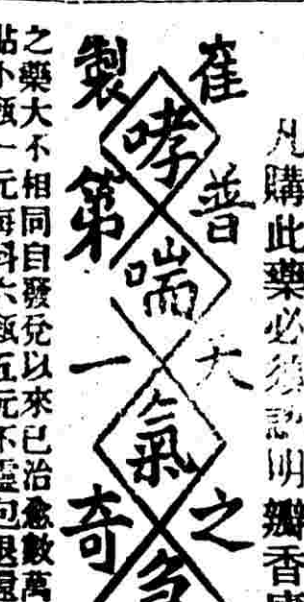 凡購此藥必須認明瓣香
崔普大之
哮喘氣急
製第一奇
之藥大不相同自發兌以來已治愈數萬
小瓶一元每料六瓶五元不靈包退還